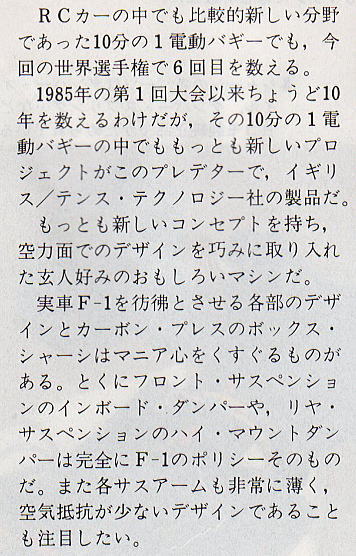 ＲＣカーの中でも比較的新しい分野
であった10分の１電動バギーでも，今
回の世界選手権で６回目を数える。
　1985年の第１回大会以来ちょうど10
年を数えるわけだが，その10分の１電
動バギーの中でももっとも新しいプロ
ジェクトがこのプレデターで，イギリ
ス／テンス・テクノロジー社の製品だ。
　もっとも新しいコンセプトを持ち，
空力面でのデザインを巧みに取り入れ
た玄人好みのおもしろいマシンだ。
　実車F-1を彷彿とさせる各部のデザ
インとカーボン・プレスのボックス・
シャーシはマニア心をくすぐるものが
ある。とくにフロント・サスペンショ
ンのインボード・ダンパーや，リヤ・
サスペンションのハイ・マウントダン
パーは完全にF-1のポリシーそのもの
だ。また各サスアームも非常に薄く，
空気抵抗が少ないデザインであること
も注目したい。